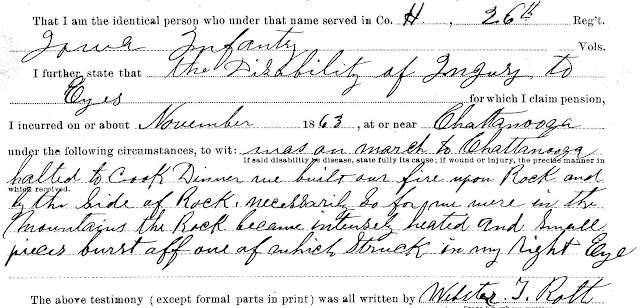 That I am the identical person who under that name served in Co. H., 26th Reg't.
Iowa Infanty Vols.
I further state that the Disability of Injury to
Eyes for which I claim pension,
I incurred on or about November 1863, at or near Chattanooga
under the following circumstances, to wit: was on march to Chattanooga
If said disability be disease, state fully its cause; if wound or injury, the precise manner in
halted to Cook Dinner we built our fire upon Rock and
which received.
by the side of Rock. necessarily So for we were in the
mountains the Rock became intensely heated and Small
pieces burst off one of which Struck in my right Eye
The above testimony (except formal parts in print) was all written by Webster. T. Roth